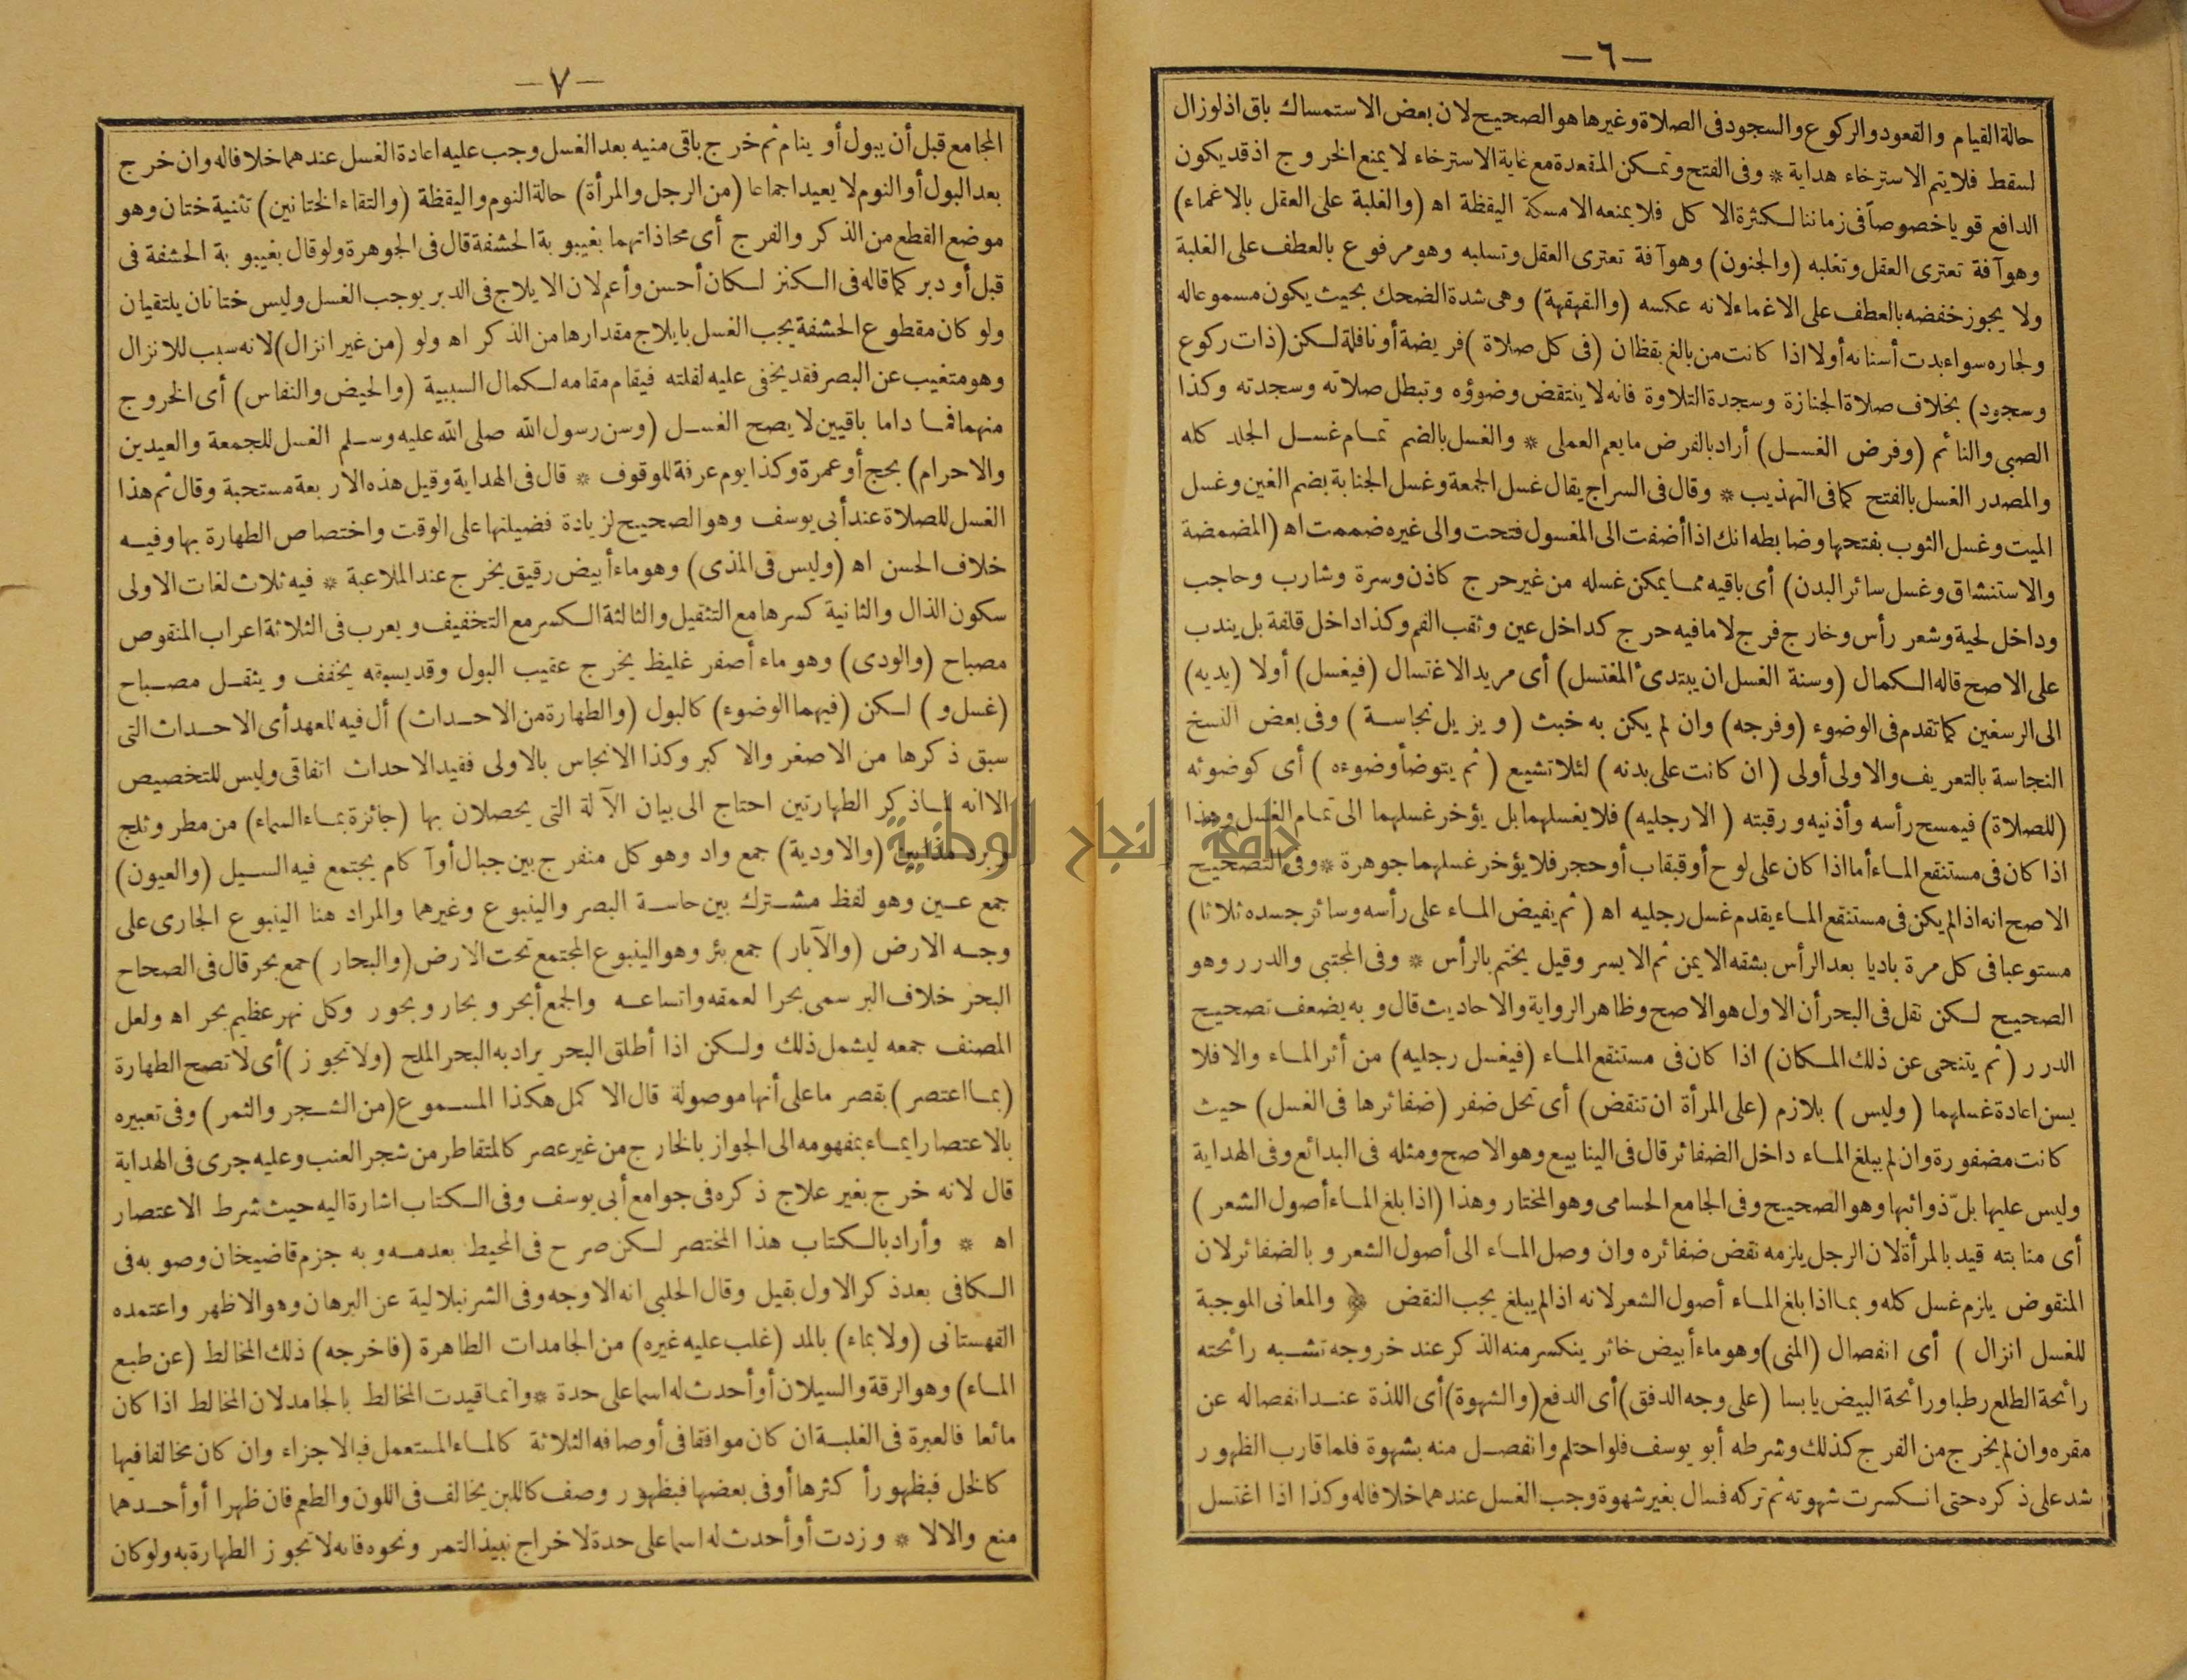 —٦—
حالة القيام والقعود والركوع والسجود فى الصلاة وغيرها هو الصحيح لان بعض الاستمساك باق اذ لو زال
لسقط فلا يتم الاسترخاء هداية * وفى الفتح وتمكن المقعدة مع غاية الاسترخاء لا يمنع الخروج اذ قد يكون
الدافع قويا خصوصاً فى زماننا لكثرة الاكل فلا يمنعه الا مسكة اليقظة اه (والغلبة على العقل بالاغماء)
وهو آفة تعترى العقل وتغلبه (والجنون) وهو آفة تعترى العقل وتسلبه وهو مرفوع بالعطف على الغلبة
ولا يجوز خفضه بالعطف على الاغماء لانه عكسه (والقهقهة) وهى شدة الضحك بحيث يكون مسموعا له
ولجاره سواء بدت أسنانه أولا اذا كانت من بالغ يقظان (فى كل صلاة) فريضة أو نافلة لكن (ذات ركوع
وسجود) بخلاف صلاة الجنازة وسجدة التلاوة فانه لا ينتقض وضوؤه وتبطل صلاته وسجدته وكذا
الصبى والنائم (وفرض الغسل) أراد بالفرض ما يعم العملى * والغسل بالضم تمام غسل الجلد كله
والمصدر الغسل بالفتح كما فى التهذيب * وقال فى السراج يقال غسل الجمعة وغسل الجنابة بضم الغين وغسل
الميت وغسل الثوب بفتحها وضابطه انك اذا أضفت الى المغسول فتحت والى غيره ضممت اه (المضمضة
والاستنشاق وغسل سائر البدن) أى باقيه مما يمكن غسله من غير حرج كاذن وسرة وشارب وحاجب
وداخل لحية وشعر رأس وخارج فرج لا ما فيه حرج كداخل عين وثقب الفم وكذا داخل قلفة بل يندب
على الاصح قاله الكمال (وسنة الغسل ان يبتدئ المغتسل) أى مريد الاغتسال (فيغسل) أولا (يديه)
الى الرسغين كما تقدم فى الوضوء (وفرجه) وان لم يكن به خبث (ويزيل نجاسة) وفى بعض النسخ
النجاسة بالتعريف والاولى أولى (ان كانت على بدنه) لئلا تشيع (ثم يتوضأ وضوءه) أى كوضوئه
(للصلاة) فيمسح رأسه وأذنيه ورقبته (الا رجليه) فلا يغسلهما بل يؤخر غسلهما الى تمام الغسل وهذا
اذا كان فى مستنقع الماء أما اذا كان على لوح أو قبقاب أو حجر فلا يؤخر غسلهما جوهرة * وفى التصحيح
الاصح انه اذا لم يكن فى مستنقع الماء يقدم غسل رجليه اه (ثم يفيض الماء على رأسه وسائر جسده ثلاثا)
مستوعبا فى كل مرة باديا بعد الرأس بشقه الايمن ثم الايسر وقيل يختم بالرأس * وفى المجتبى والدرر وهو
الصحيح لكن نقل فى البحر أن الاول هو الاصح وظاهر الرواية والاحاديث قال وبه يضعف تصحيح
الدرر (ثم يتنحى عن ذلك المكان) اذا كان فى مستنقع الماء (فيغسل رجليه) من أثر الماء والا فلا
يسن اعادة غسلهما (وليس) بلازم (على المرأة ان تنقض) أى تحل ضفر (ضفائرها فى الغسل) حيث
كانت مضفورة وان لم يبلغ الماء داخل الضفائر قال فى الينابيع وهو الاصح ومثله فى البدائع وفى الهداية
وليس عليها بلّ ذوائبها وهو الصحيح وفى الجامع الحسامى وهو المختار وهذا (اذا بلغ الماء أصول الشعر)
أى منابته قيد بالمرأة لان الرجل يلزمه نقض ضفائره وان وصل الماء الى أصول الشعر وبالضفائر لان
المنقوض يلزم غسل كله وبما اذا بلغ الماء أصول الشعر لانه اذا لم يبلغ يجب النقض ﴿ والمعانى الموجبة
للغسل انزال ) أى انفصال (المنى) وهو ماء أبيض خاثر ينكسر منه الذكر عند خروجه تشبه رائحته
رائحة الطلع رطبا ورائحة البيض يابسا (على وجه الدفق) أى الدفع (والشهوة) أى اللذة عند انفصاله عن
مقره وان لم يخرج من الفرج كذلك وشرطه أبو يوسف فلو احتلم وانفصل منه بشهوة فلما قارب الظهور
شد على ذكره حتى انكسرت شهوته ثم تركه فسال بغير شهوة وجب الغسل عندهما خلافا له وكذا اذا اغتسل
—٧—
المجامع قبل أن يبول أو ينام ثم خرج باقى منيه بعد الغسل وجب عليه اعادة الغسل عندهما خلافا له وان خرج
بعد البول أو النوم لا يعيد اجماعا (من الرجل والمرأة) حالة النوم واليقظة (والتقاء الختانين) تثنية ختان وهو
موضع القطع من الذكر والفرج أى محاذاتهما بغيبوبة الحشفة قال فى الجوهرة ولو قال بغيبوبة الحشفة فى
قبل أو دبر كما قاله فى الكنز لكان أحسن وأعم لان الايلاج فى الدبر يوجب الغسل وليس ختانان يلتقيان
ولو كان مقطوع الحشفة يجب الغسل بايلاج مقدارها من الذكر اه ولو (من غير انزال) لانه سبب للانزال
وهو متغيب عن البصر فقد يخفى عليه لقلته فيقام مقامه لكمال السببية (والحيض والنفاس) أى الخروج
منهما فما داما باقيين لا يصح الغسل (وسن رسول الله صلى الله عليه وسلم الغسل للجمعة والعيدين
والاحرام) بحج أو عمرة وكذا يوم عرفة للوقوف * قال فى الهداية وقيل هذه الاربعة مستحبة وقال ثم هذا
الغسل للصلاة عند أبى يوسف وهو الصحيح لزيادة فضيلتها على الوقت واختصاص الطهارة بها وفيه
خلاف الحسن اه (وليس فى المذى) وهو ماء أبيض رقيق يخرج عند الملاعبة * فيه ثلاث لغات الاولى
سكون الذال والثانية كسرها مع التثقيل والثالثة الكسر مع التخفيف ويعرب فى الثلاثة اعراب المنقوص
مصباح (والودى) وهو ماء أصفر غليظ يخرج عقيب البول وقد يسبقه يخفف ويثقل مصباح
(غسل و) لكن (فيهما الوضوء) كالبول (والطهارة من الاحداث) أل فيه للعهد أى الاحداث التى
سبق ذكرها من الاصغر والاكبر وكذا الانجاس بالاولى فقيد الاحداث اتفاقى وليس للتخصيص
الا انه لما ذكر الطهارتين احتاج الى بيان الآلة التى يحصلان بها (جائزة بماء السماء) من مطر وثلج
وبرد مذابين (والاودية) جمع واد وهو كل منفرج بين جبال أو آكام يجتمع فيه السيل (والعيون)
جمع عين وهو لفظ مشترك بين حاسة البصر والينبوع وغيرهما والمراد هنا الينبوع الجارى على
وجه الارض (والآبار) جمع بئر وهو الينبوع المجتمع تحت الارض (والبحار) جمع بحر قال فى الصحاح
البحر خلاف البر سمى بحرا لعمقه واتساعه والجمع أبحر وبحار وبحور وكل نهر عظيم بحر اه ولعل
المصنف جمعه ليشمل ذلك ولكن اذا أطلق البحر يراد به البحر الملح (ولا تجوز) أى لا تصح الطهارة
(بما اعتصر) بقصر ما على أنها موصولة قال الاكمل هكذا المسموع (من الشجر والثمر) وفى تعبيره
بالاعتصار ايماء بمفهومه الى الجواز بالخارج من غير عصر كالمتقاطر من شجر العنب وعليه جرى فى الهداية
قال لانه خرج بغير علاج ذكره فى جوامع أبى يوسف وفى الكتاب اشارة اليه حيث شرط الاعتصار
اه * وأراد بالكتاب هذا المختصر لكن صرح فى المحيط بعدمه وبه جزم قاضيخان وصوبه فى
الكافى بعد ذكر الاول بقيل وقال الحلبى انه الاوجه وفى الشرنبلالية عن البرهان وهو الاظهر واعتمده
القهستانى (ولا بماء) بالمد (غلب عليه غيره) من الجامدات الطاهرة (فاخرجه) ذلك المخالط (عن طبع
الماء) وهو الرقة والسيلان أو أحدث له اسما على حدة * وانما قيدت المخالط بالجامد لان المخالط اذا كان
مائعا فالعبرة فى الغلبة ان كان موافقا فى أوصافه الثلاثة كالماء المستعمل فبالاجزاء وان كان مخالفا فيها
كالخل فبظهور أكثرها أو فى بعضها فبظهور وصف كاللبن يخالف فى اللون والطعم فان ظهرا أو أحدهما
منع والا لا * وزدت أو أحدث له اسما على حدة لاخراج نبيذ التمر ونحوه فانه لا تجوز الطهارة به ولو كان
جامعة النجاح الوطنية